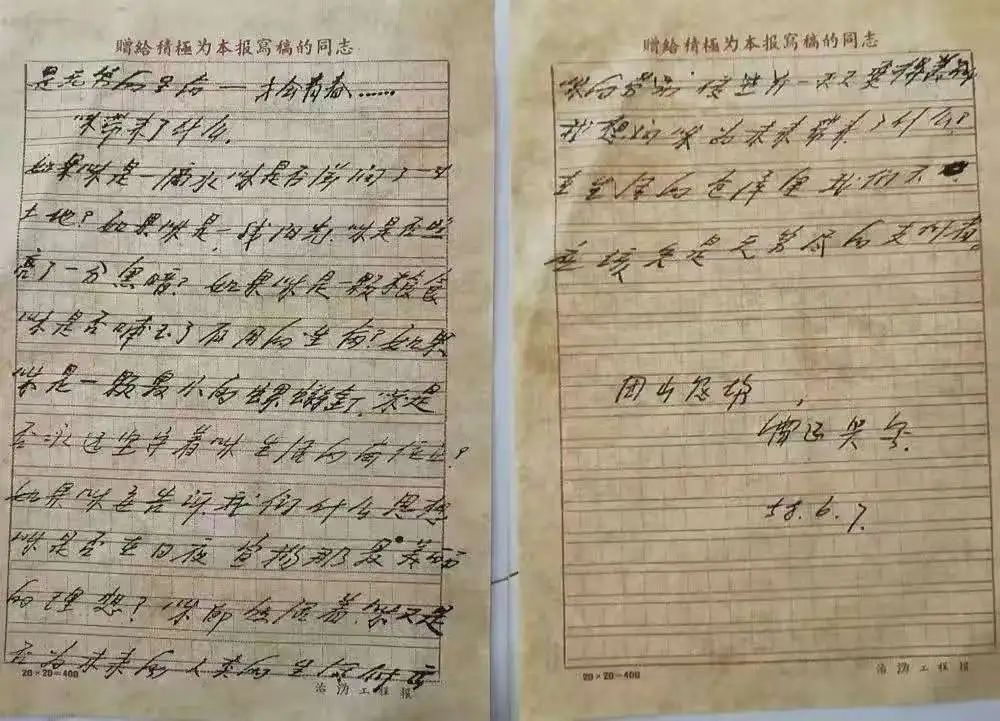 贈給積極为本报寫稿的同志
是充的生活——才会有青春……
咪带来了什么.
如果咪是一滴水咪是否滋润了一寸
土地？如果咪是一线阳光.咪是否照
亮了一分黑暗？如果咪是一颗粮食
咪是否哺育了有用的生命？如果
咪是一颗最小的螺丝钉.咪是
否永远坚守着咪生活的岗位？
如果咪要告诉我们什么思想
咪是否在日夜宣扬那最美丽
的理想？咪既然活着.咪又是
否为未来的人类的生活付出
20×20=400
治沩工程报
贈給積極为本报寫稿的同志
咪的劳动使世界一天天变得美丽
我想问咪为未来带来了什么？
在生活的仓库里我们不
应该是无穷尽的支付者.
团山
58.6.7.
20×20=400
治沩工程报